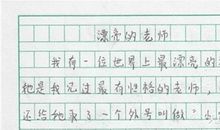 漂亮的老师
我有一位世界上最漂亮的
她是我见过最有性格的老师，
还给她取了一个外号叫做"